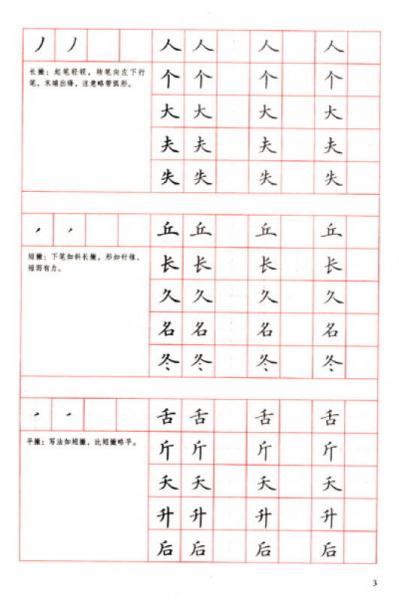 丿 丿 人 人 人 人
长撇：起笔轻顿，转笔向左下行
笔，末端出锋，注意略带弧形。
个 个 个 个
大 大 大 大
夫 夫 夫 夫
失 失 失 失
丘 丘 丘 丘
短撇：下笔如斜长撇，形如针锥，
短而有力。
长 长 长 长
久 久 久 久
名 名 名 名
冬 冬 冬 冬
舌 舌 舌 舌
平撇：写法如短撇，比短撇略平。
斤 斤 斤 斤
夭 夭 夭 夭
升 升 升 升
后 后 后 后
3